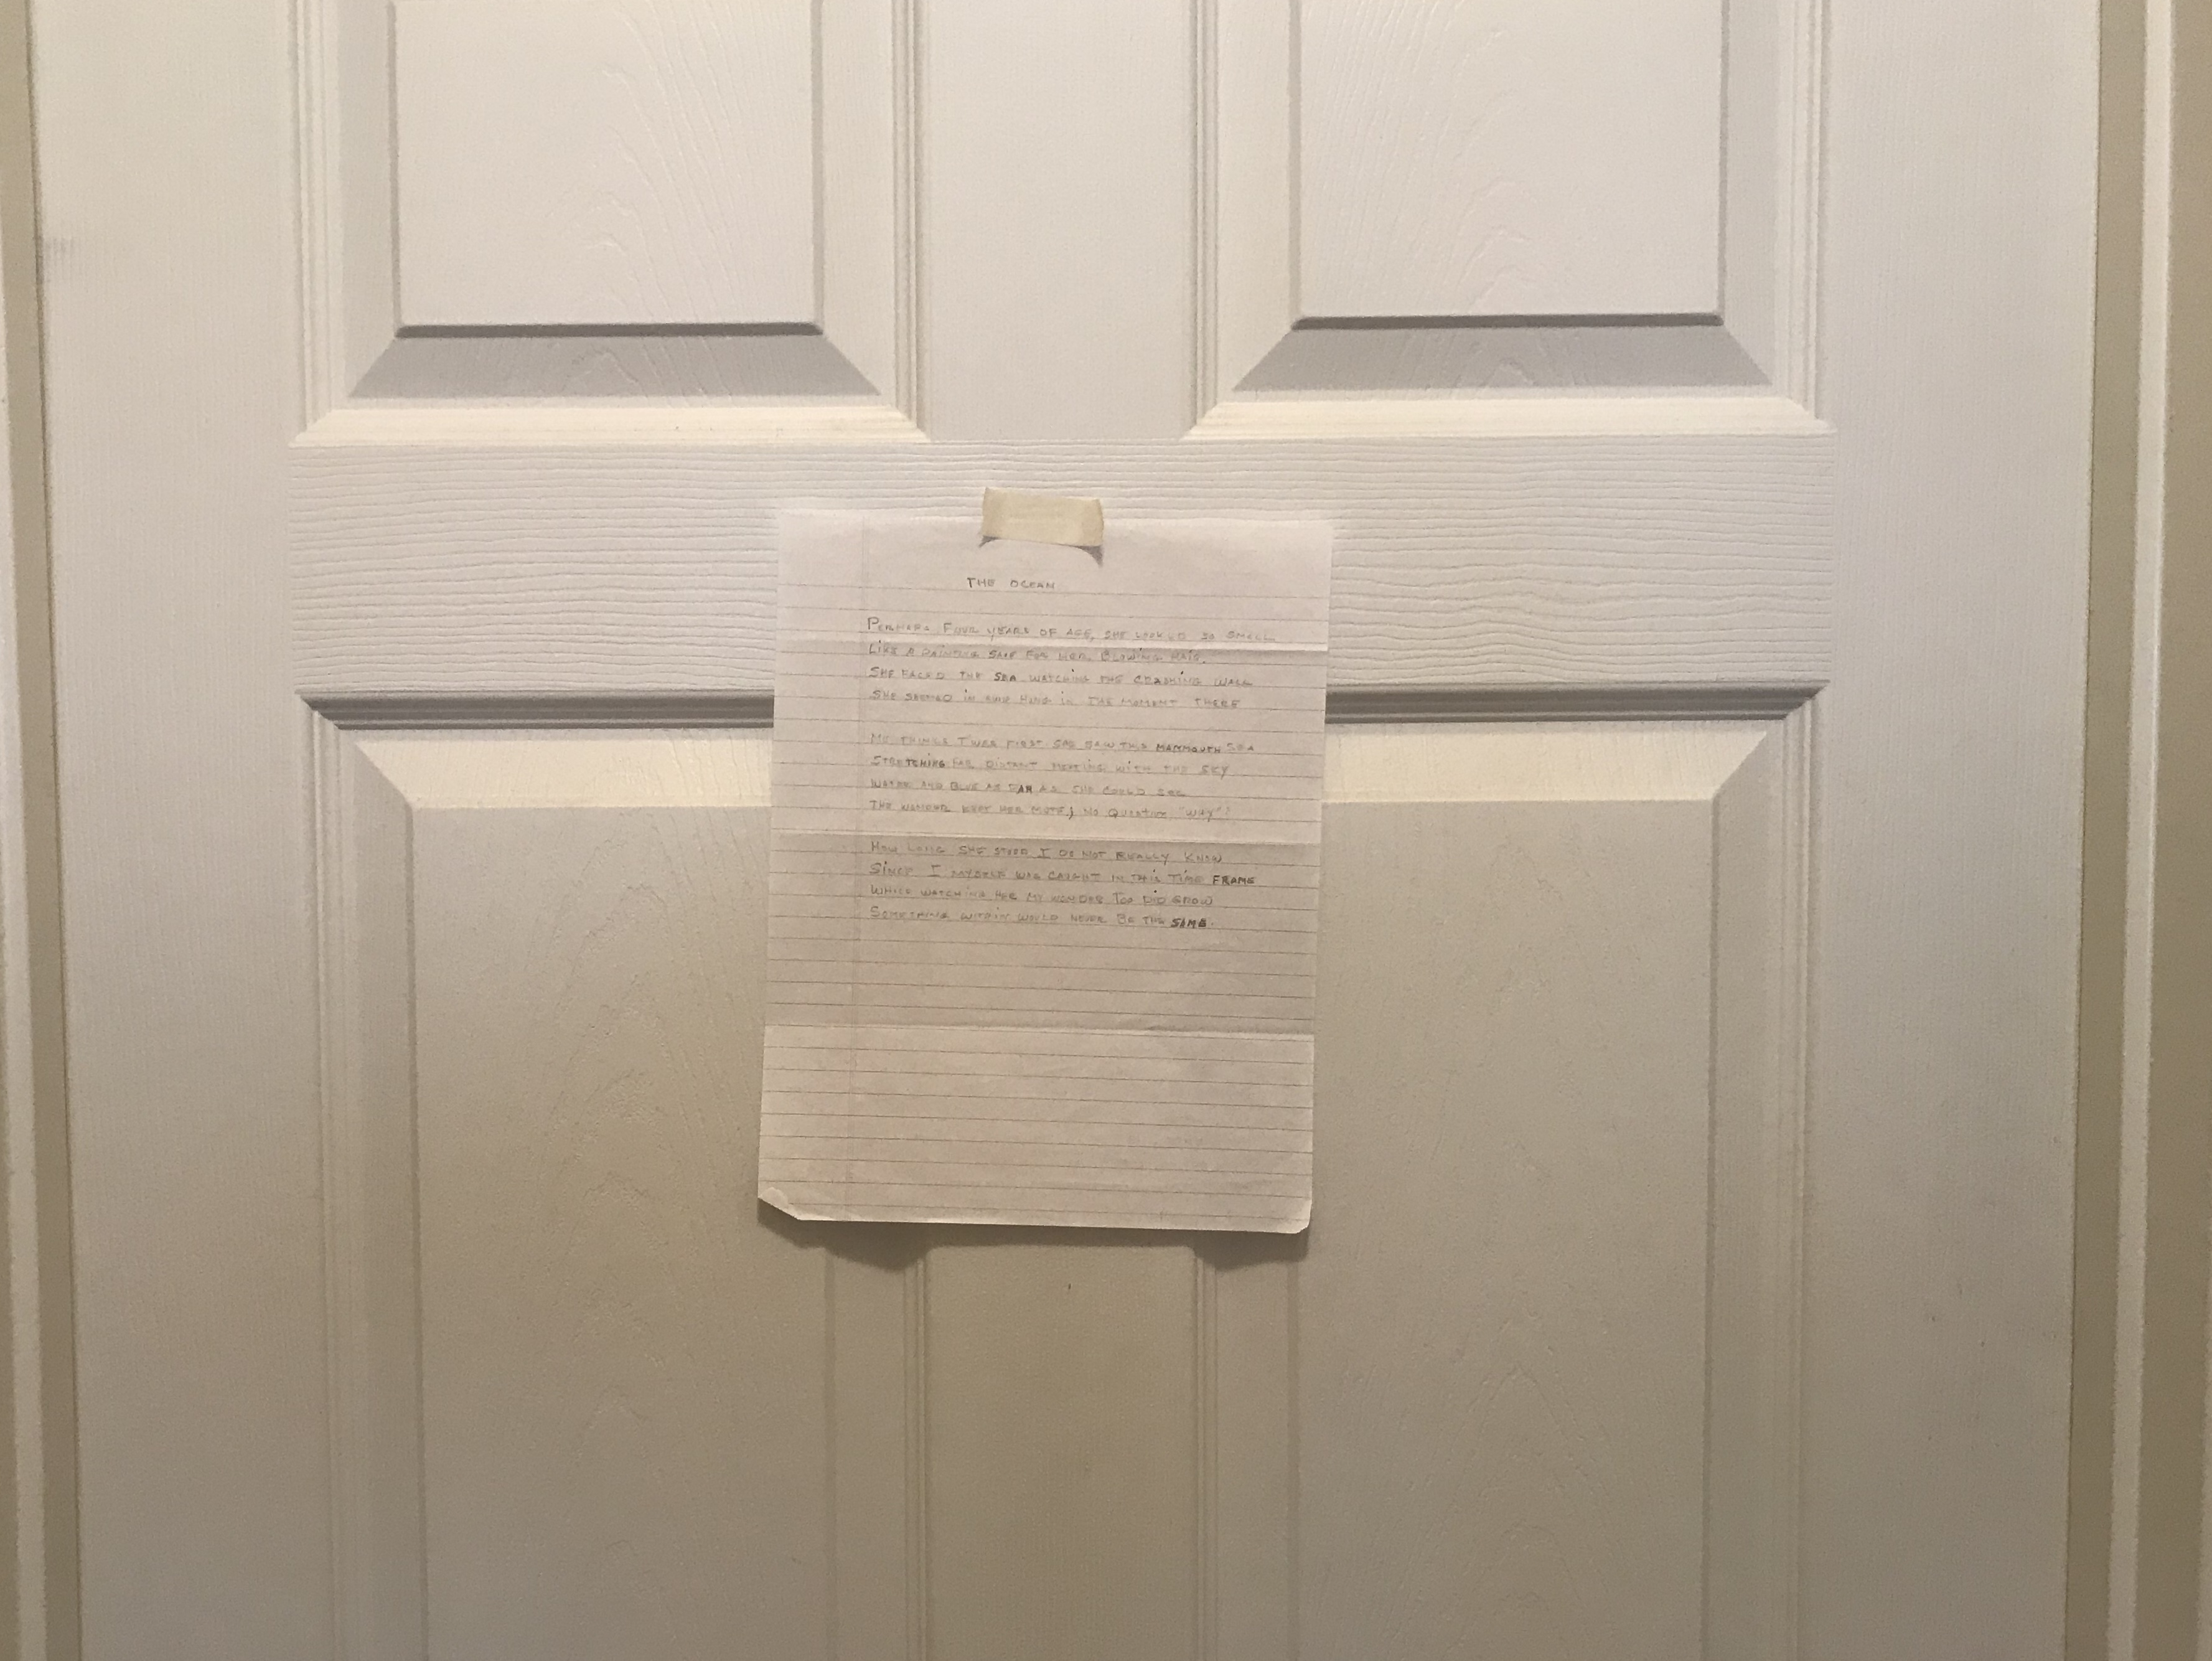 THE OCEAN
PERHAPS FOUR YEARS OF AGE, SHE LOOKED SO SMALL
LIKE A PAINTING SAVE FOR HER BLOWING HAIR.
SHE FACED THE SEA WATCHING THE CRASHING WALL
SHE SEEMED IN IN THE MOMENT THERE
ME THINKS TWAS FIRST SHE SAW THIS MAMMOUTH SEA
STRETCHING FAR DISTANT MEETING WITH THE SKY
WATER AND BLUE AS FAR AS SHE COULD SEE
THE WONDER KEPT HER MUTE, NO QUESTION "WHY"?
HOW LONG SHE STOOD I DO NOT REALLY KNOW
SINCE I MYSELF WAS CAUGHT IN THIS TIME FRAME
WHILE WATCHING HER MY WONDER TOO DID GROW
SOMETHING WITHIN WOULD NEVER BE THE SAME.